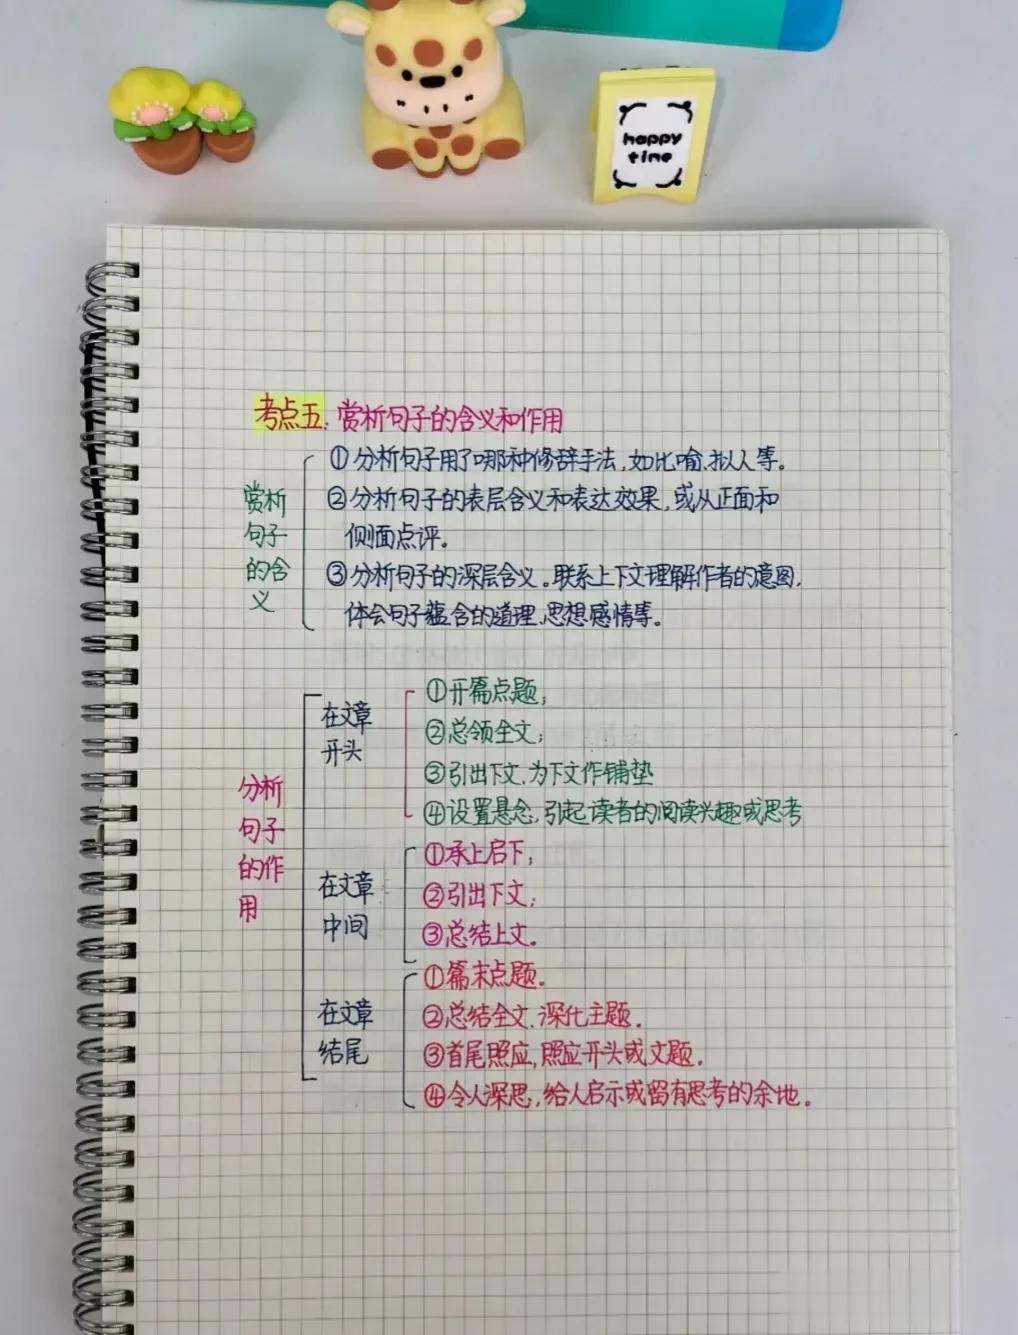 happy
time
考点五:赏析句子的含义和作用
赏析
句子
的含
义
①分析句子用了哪种修辞手法,如比喻、拟人等。
②分析句子的表层含义和表达效果,或从正面和
侧面点评。
③分析句子的深层含义。联系上下文理解作者的意图,
体会句子蕴含的道理、思想感情等。
分析
句子
的作
用
在文章
开头
①开篇点题;
②总领全文;
③引出下文,为下文作铺垫
④设置悬念,引起读者的阅读兴趣或思考
在文章
中间
①承上启下;
②引出下文;
③总结上文。
在文章
结尾
①篇末点题。
②总结全文、深化主题。
③首尾照应,照应开头或文题。
④令人深思,给人启示或留有思考的余地。